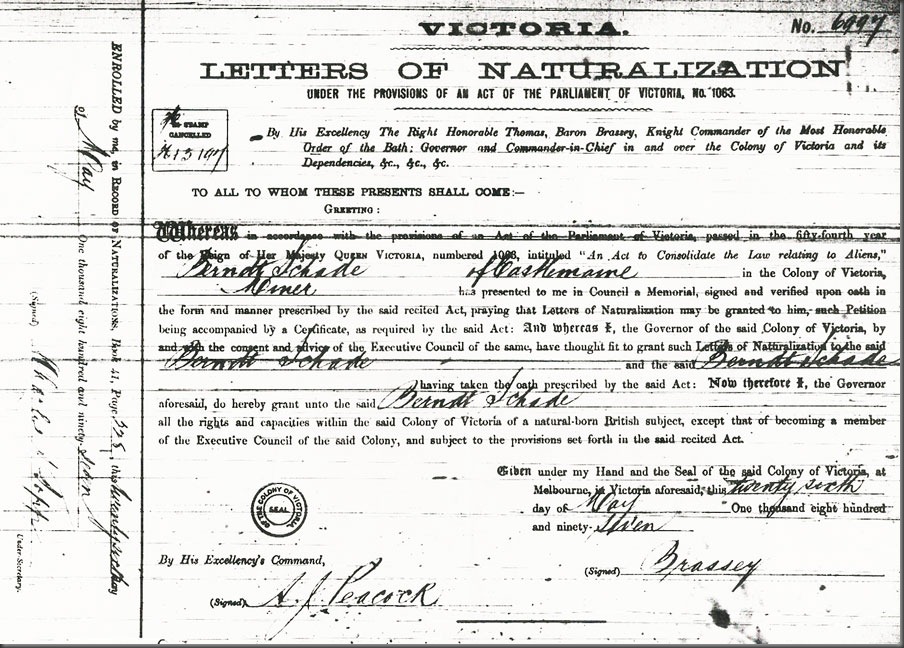 VICTORIA.
No. 6997
LETTERS OF NATURALIZATION
UNDER THE PROVISIONS OF AN ACT OF THE PARLIAMENT OF VICTORIA, No. 1063.
STAMP
CANCELLED
By His Excellency The Right Honorable Thomas, Baron Brassey, Knight Commander of the Most Honorable
Order of the Bath; Governor and Commander-in-Chief in and over the Colony of Victoria and its
Dependencies, &c., &c., &c.
TO ALL TO WHOM THESE PRESENTS SHALL COME:—
GREETING:
Whereas in accordance with the provisions of an Act of the Parliament of Victoria, passed in the fifty-fourth year
of the Reign of Her Majesty QUEEN VICTORIA, numbered 1063, intituled "An Act to Consolidate the Law relating to Aliens,"
Berndt Schade of Castlemaine in the Colony of Victoria,
Miner has presented to me in Council a Memorial, signed and verified upon oath in
the form and manner prescribed by the said recited Act, praying that Letters of Naturalization may be granted to him, such Petition
being accompanied by a Certificate, as required by the said Act: And whereas I, the Governor of the said Colony of Victoria, by
and with the consent and advice of the Executive Council of the same, have thought fit to grant such Letters of Naturalization to the said
Berndt Schade and the said Berndt Schade
having taken the oath prescribed by the said Act: Now therefore I, the Governor
aforesaid, do hereby grant unto the said Berndt Schade
all the rights and capacities within the said Colony of Victoria of a natural-born British subject, except that of becoming a member
of the Executive Council of the said Colony, and subject to the provisions set forth in the said recited Act.
Given under my Hand and the Seal of the said Colony of Victoria, at
Melbourne, in Victoria aforesaid, this twenty sixth
day of May One thousand eight hundred
and ninety-seven
OF THE COLONY OF VICTORIA
SEAL
By His Excellency's Command,
(Signed) Brassey
(Signed), A. J. Peacock
ENROLLED by me, in RECORD OF NATURALIZATIONS, Book 41, Page 228, this twenty sixth day
of May One thousand eight hundred and ninety-seven
(Signed)
Under-Secretary.